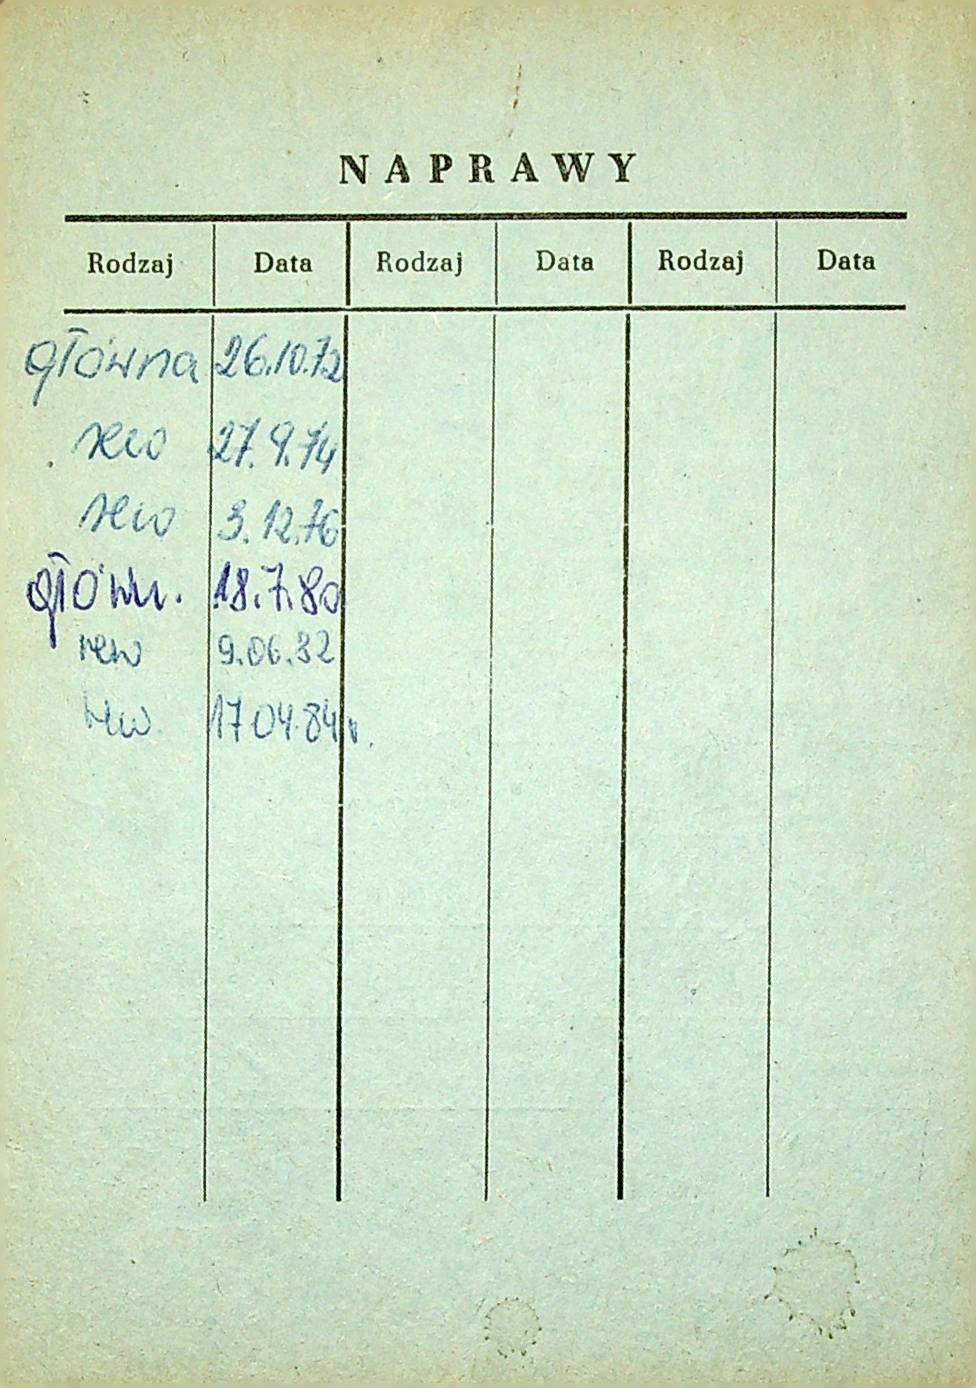 NAPRAWY
Rodzaj Data Rodzaj Data Rodzaj Data
główna 26.10.72
rew 27.9.74
rew 3.12.76
główn. 18.7.80
rew 9.06.82
rew. 17 04.84 r.